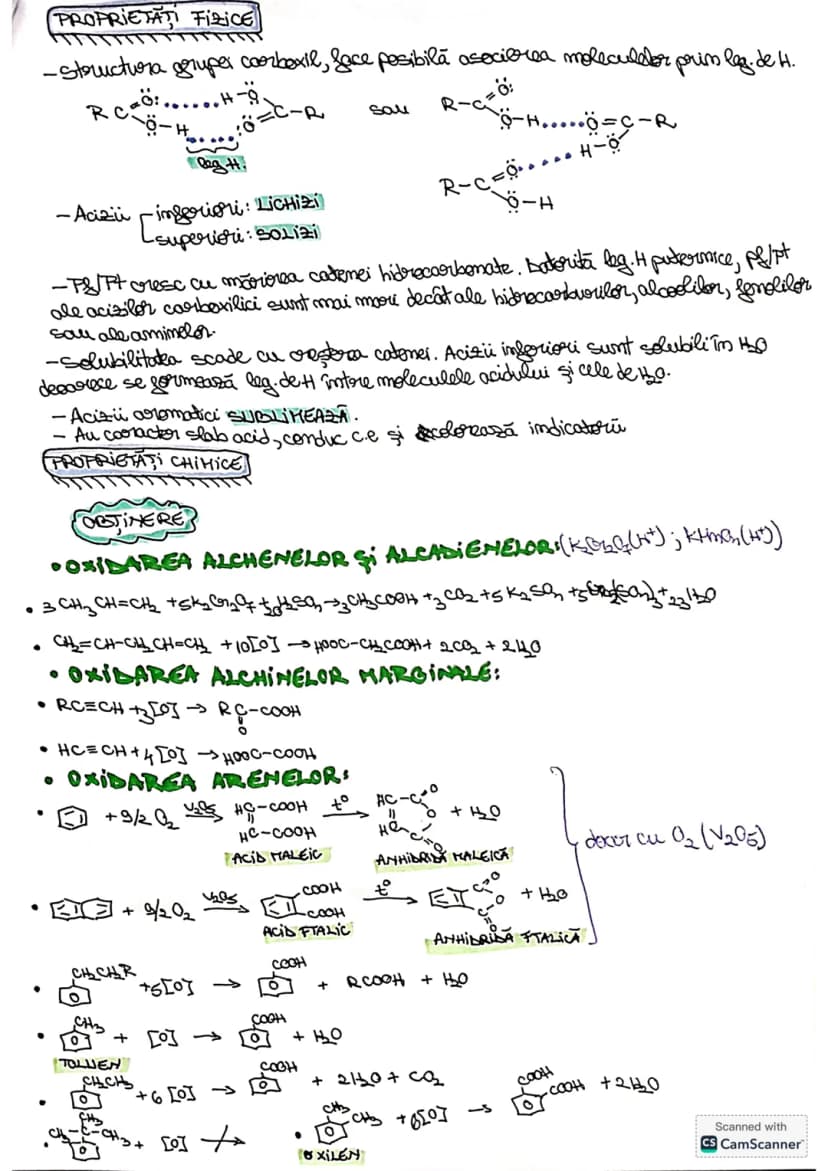 PROPRIETĂȚI FIZICE
-Structura grupei carboxil, face posibilă asocierea moleculelor prin leg. de H.
R C=Ö: ...... H-Ö C-R sau R-C=Ö:
Ö-H ..... :Ö= Ö-H.....Ö=C-R
leg H. R-C=Ö..... H-Ö
Ö-H
- Acizii inferiori: LICHIZI
superiori: SOLIZI
-Pf/Pt cresc cu mărirea catenei hidrocarbonate. Datorită leg. H puternice, pf/pt
ale acizilor carboxilici sunt mai mari decât ale hidrocarburilor, alcoolilor, fenolilor
sau ale aminelor.
-Solubilitatea scade cu creșterea catenei. Acizii inferiori sunt solubili în H2O
deoarece se formează leg. de H între moleculele acidului și cele de H2O.
- Acizii aromatici SUBLIMEAZĂ.
- Au caracter slab acid, conduc c.e și colorează indicatorii
PROPRIETĂȚI CHIMICE
OBȚINERE
• OXIDAREA ALCHENELOR ȘI ALCADIENELOR: (K2Cr2O7(H+) ; KMnO4(H+))
• 3 CH3CH=CH2 +5K2Cr2O7 +20H2SO4 →3CH3COOH +3CO2 +5 K2SO4 +5Cr2(SO4)3 +23H2O
• CH2=CH-CH2CH=CH2 +10[O] →HOOC-CH2COOH+ 2CO2 + 2H2O
• OXIDAREA ALCHINELOR MARGINALE:
• RC≡CH +3[O] → RC-COOH
O
• HC≡CH + 4[O] →HOOC-COOH
• OXIDAREA ARENELOR:
• +9/2 O2 V2O5 HC-COOH t° HC-C=O O + H2O
HC-COOH HC-C=O
ACID MALEIC ANHIDRIDĂ MALEICĂ
doar cu O2 (V2O5)
• + 9/2O2 V2O5 COOH t° C=O O + H2O
COOH C=O
ACID FTALIC ANHIDRIDĂ FTALICĂ
• CH2CH2R +5[O] → COOH + RCOOH + H2O
• CH3 + [O] → COOH + H2O
TOLUEN
• CH2CH3 +6 [O] → COOH + 2H2O + CO2
CH3
• CH3-C-CH3 + [O] • CH3 CH3 + 6[O] → COOH COOH +2H2O
O XILEN
Scanned with
CS CamScanner